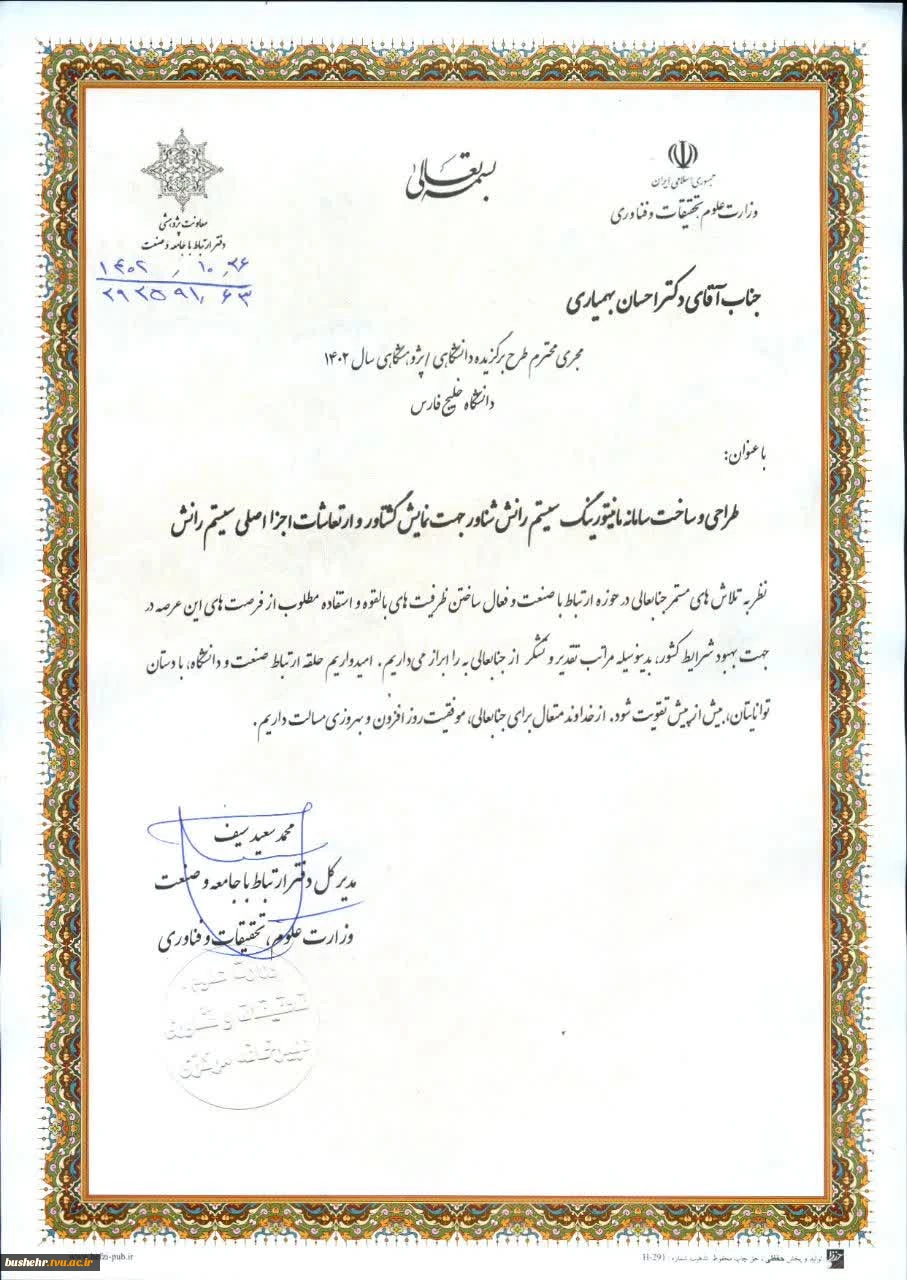 بسمه تعالی
جمهوری اسلامی ایران
وزارت علوم تحقیقات و فناوری
معاونت پژوهشی
دفتر ارتباط با جامعه و صنعت
۱۴۰۲ ، ۱۰ ، ۲۶
جناب آقای دکتر احسان بهمیاری
مجری محترم طرح برگزیده دانشگاهی / پژوهشگاهی سال ۱۴۰۲
دانشگاه خلیج فارس
با عنوان:
طراحی و ساخت سامانه مانیتورینگ سیستم رانش شناور جهت نمایش گشتاور و ارتعاشات اجزا اصلی سیستم رانش
نظر به تلاش های مستمر جنابعالی در حوزه ارتباط با صنعت و فعال ساختن ظرفیت های بالقوه و استفاده مطلوب از فرصت های این عرصه در
جهت بهبود شرایط کشور، بدینوسیله مراتب تقدیر و تشکر از جنابعالی به را ابراز می‌داریم. امیدواریم حلقه ارتباط صنعت و دانشگاه، با دستان
توانایتان، بیش از پیش تقویت شود. از خداوند متعال برای جنابعالی، موفقیت روز افزون و بهروزی مسالت داریم.
محمد سعید سیف
مدیر کل دفتر ارتباط با جامعه و صنعت
وزارت علوم، تحقیقات و فناوری
وزارت علوم،
تحقیقات و فناوری
دبیرخانه مرکزی
تولید و پخش حفظی ، حق چاپ محفوظ تذهیب شماره : H-291
bushehr.tvu.ac.ir